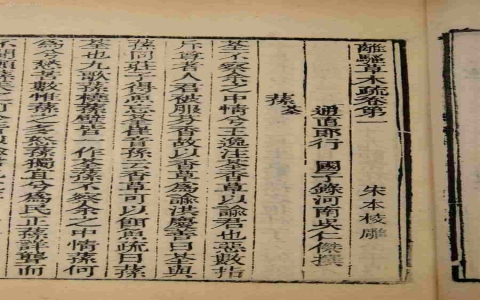 離騷草木疏卷第一 宋本校雕
通直郎行 國子錄河南吳仁傑撰
荃
蓀
荃不察余之中情兮王逸注荃香草以諭君也惡數指
斥尊者人君被服芬香故以香草為諭洪慶善曰荃與
蓀同莊子得魚忘荃崔音孫云香草可以餌魚疏曰蓀
荃也九歌蓀橈蓀壁皆一作荃蓀不察余之中情蓀何
為兮愁苦數惟蓀之多怒蓀獨宜兮為民正蓀詳聾而